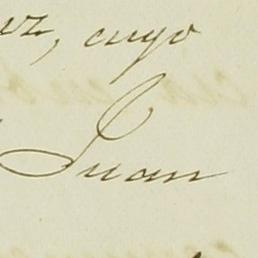 cuyo
Juan